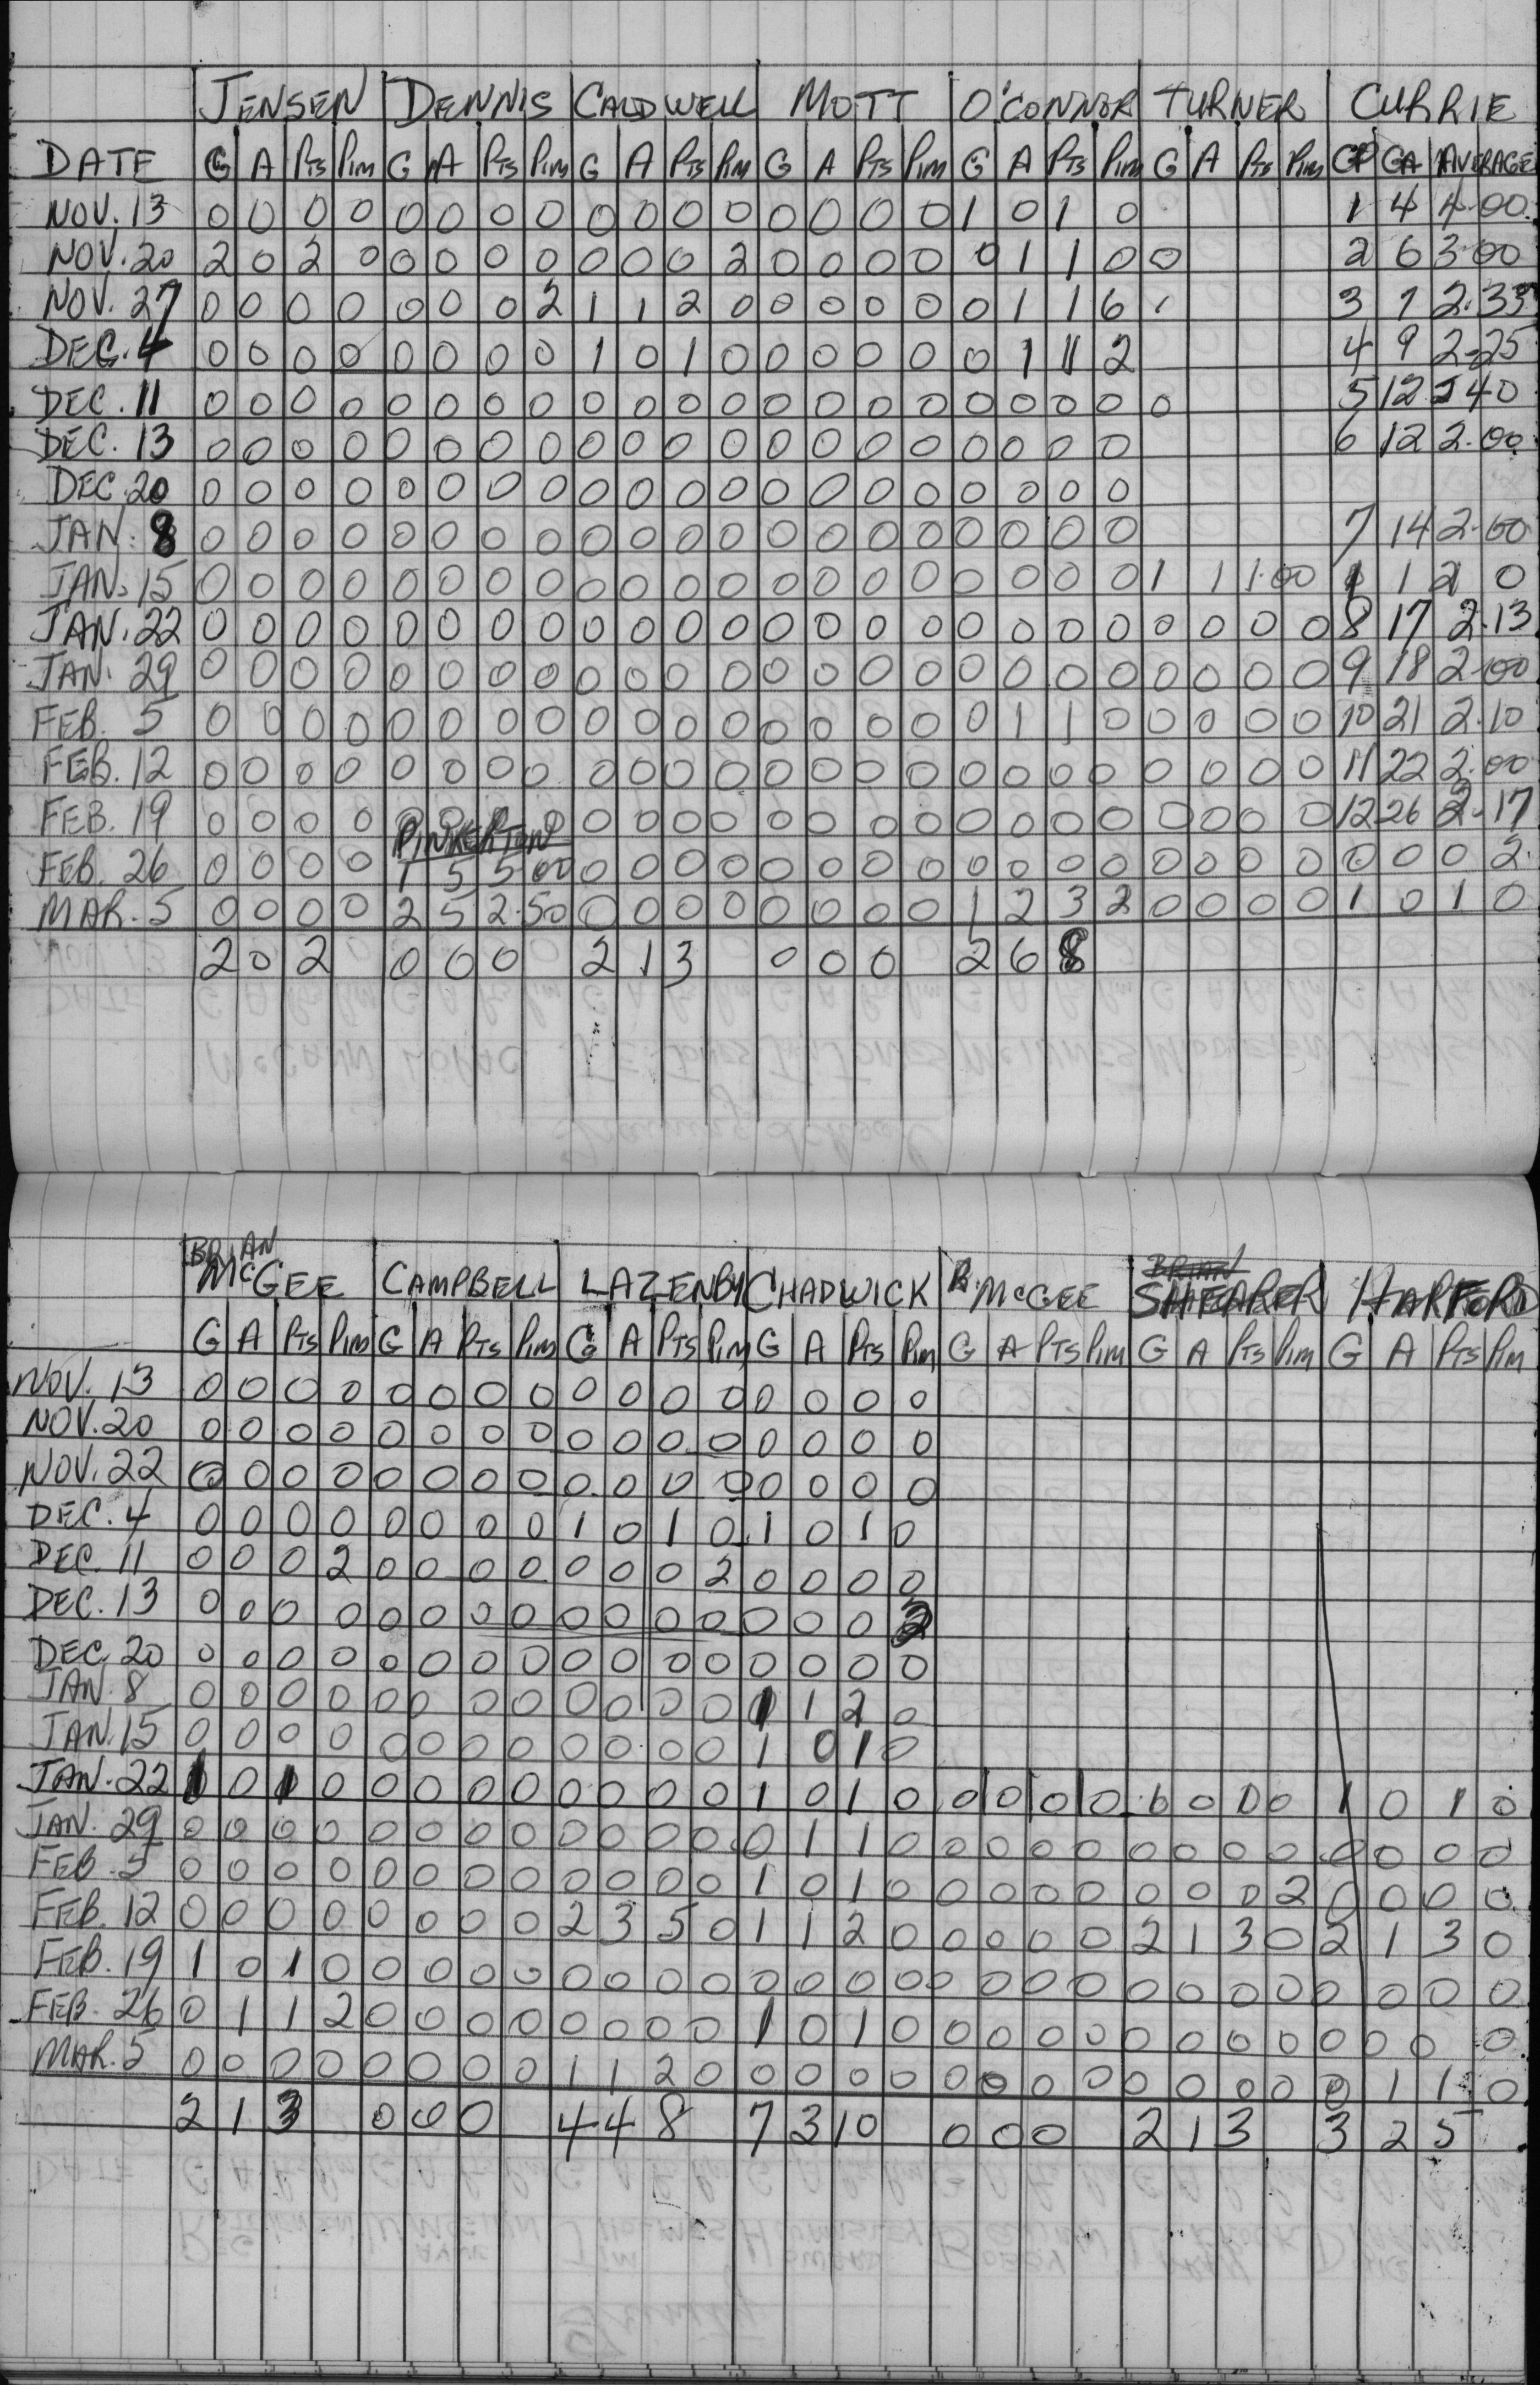 JENSEN DENNIS CALDWELL MOTT O'CONNOR TURNER CURRIE
DATE G A Pts Pim G A Pts Pim G A Pts Pim G A Pts Pim G A Pts Pim G A Pts Pim GP GA AVERAGE
NOV. 13 0 0 0 0 0 0 0 0 0 0 0 0 0 0 0 0 1 0 1 0 1 4 4.00
NOV. 20 2 0 2 0 0 0 0 0 0 0 0 2 0 0 0 0 0 1 1 0 0 2 6 3.00
NOV. 27 0 0 0 0 0 0 0 2 1 1 2 0 0 0 0 0 0 1 1 6 3 7 2.33
DEC. 4 0 0 0 0 0 0 0 0 1 0 1 0 0 0 0 0 0 1 1 2 4 9 2.25
DEC. 11 0 0 0 0 0 0 0 0 0 0 0 0 0 0 0 0 0 0 0 0 0 5 12 2.40
DEC. 13 0 0 0 0 0 0 0 0 0 0 0 0 0 0 0 0 0 0 0 0 6 12 2.00
DEC. 20 0 0 0 0 0 0 0 0 0 0 0 0 0 0 0 0 0 0 0 0
JAN. 8 0 0 0 0 0 0 0 0 0 0 0 0 0 0 0 0 0 0 0 0 7 14 2.00
JAN. 15 0 0 0 0 0 0 0 0 0 0 0 0 0 0 0 0 0 0 0 0 1 1 1.00 1 1 2 0
JAN. 22 0 0 0 0 0 0 0 0 0 0 0 0 0 0 0 0 0 0 0 0 0 0 0 0 8 17 2.13
JAN. 29 0 0 0 0 0 0 0 0 0 0 0 0 0 0 0 0 0 0 0 0 0 0 0 0 9 18 2.00
FEB. 5 0 0 0 0 0 0 0 0 0 0 0 0 0 0 0 0 0 1 1 0 0 0 0 0 10 21 2.10
FEB. 12 0 0 0 0 0 0 0 0 0 0 0 0 0 0 0 0 0 0 0 0 0 0 0 0 11 22 2.00
FEB. 19 0 0 0 0 0 0 0 0 0 0 0 0 0 0 0 0 0 0 0 0 0 0 0 0 12 26 2.17
PINKERTON
FEB. 26 0 0 0 0 1 5 5.00 0 0 0 0 0 0 0 0 0 0 0 0 0 0 0 0 0 0 0 2.
MAR. 5 0 0 0 0 2 5 2.50 0 0 0 0 0 0 0 0 1 2 3 2 0 0 0 0 1 0 1 0
2 0 2 0 0 0 2 1 3 0 0 0 2 6 8
BRIAN McGEE CAMPBELL LAZENBY CHADWICK R. McGEE BRIAN SHEARER HARFORD
G A Pts Pim G A Pts Pim G A Pts Pim G A Pts Pim G A Pts Pim G A Pts Pim G A Pts Pim
NOV. 13 0 0 0 0 0 0 0 0 0 0 0 0 0 0 0 0
NOV. 20 0 0 0 0 0 0 0 0 0 0 0 0 0 0 0 0
NOV. 22 0 0 0 0 0 0 0 0 0 0 0 0 0 0 0 0
DEC. 4 0 0 0 0 0 0 0 0 1 0 1 0 1 0 1 0
DEC. 11 0 0 0 2 0 0 0 0 0 0 0 2 0 0 0 0
DEC. 13 0 0 0 0 0 0 0 0 0 0 0 0 0 0 0 2
DEC. 20 0 0 0 0 0 0 0 0 0 0 0 0 0 0 0 0
JAN. 8 0 0 0 0 0 0 0 0 0 0 0 0 1 1 2 0
JAN. 15 0 0 0 0 0 0 0 0 0 0 0 0 1 0 1 0
JAN. 22 1 0 1 0 0 0 0 0 0 0 0 0 1 0 1 0 0 0 0 0 0 0 0 0 1 0 1 0
JAN. 29 0 0 0 0 0 0 0 0 0 0 0 0 0 1 1 0 0 0 0 0 0 0 0 0 0 0 0 0
FEB. 5 0 0 0 0 0 0 0 0 0 0 0 0 1 0 1 0 0 0 0 0 0 0 0 2 0 0 0 0
FEB. 12 0 0 0 0 0 0 0 0 2 3 5 0 1 1 2 0 0 0 0 0 2 1 3 0 2 1 3 0
FEB. 19 1 0 1 0 0 0 0 0 0 0 0 0 0 0 0 0 0 0 0 0 0 0 0 0 0 0 0 0
FEB. 26 0 1 1 2 0 0 0 0 0 0 0 0 1 0 1 0 0 0 0 0 0 0 0 0 0 0 0 0
MAR. 5 0 0 0 0 0 0 0 0 1 1 2 0 0 0 0 0 0 0 0 0 0 0 0 0 0 1 1 0
2 1 3 0 0 0 4 4 8 7 3 10 0 0 0 2 1 3 3 2 5